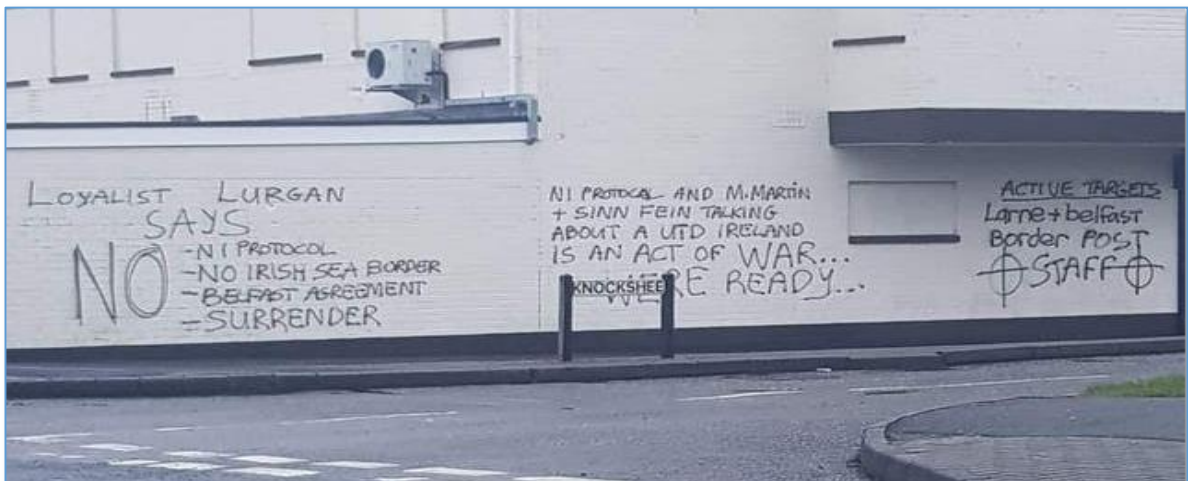 LOYALIST LURGAN
SAYS
NO
-NI PROTOCOL
-NO IRISH SEA BORDER
-BELFAST AGREEMENT
-SURRENDER
NI PROTOCAL AND M.MARTIN
+ SINN FEIN TALKING
ABOUT A UTD IRELAND
IS AN ACT OF WAR...
WERE READY...
KNOCKSHEE
ACTIVE TARGETS
Larne + belfast
Border POST
STAFF